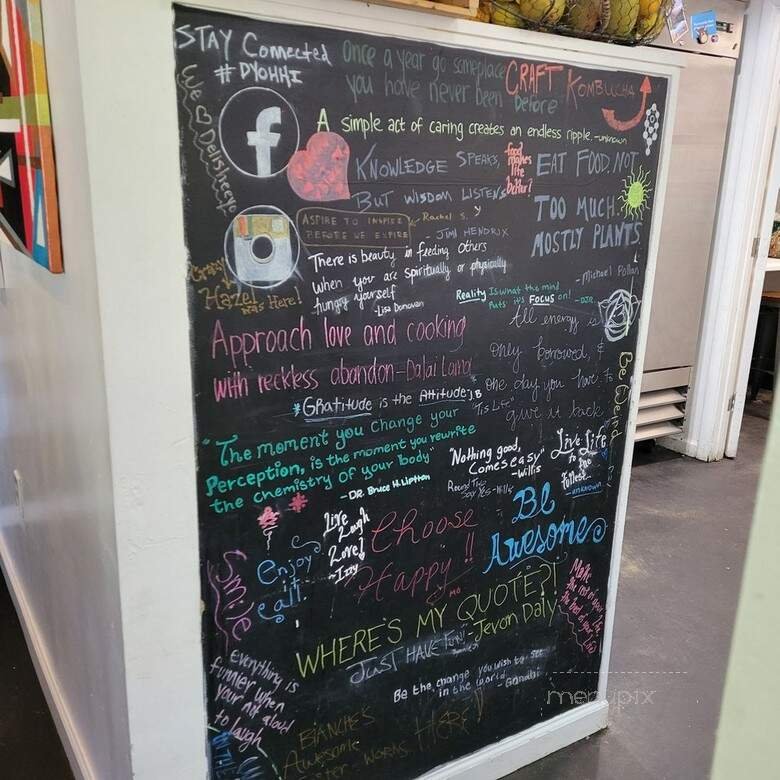 STAY Connected
# DYOHHI
Once a year go someplace
you have never been before
CRAFT KOMBUCHA
We Delisheeyo
f
A simple act of caring creates an endless ripple. -unknown
KNOWLEDGE SPEAKS,
BUT WISDOM LISTENS
- JIMI HENDRIX
food
makes
life
better!
EAT FOOD, NOT
TOO MUCH.
MOSTLY PLANTS.
- Michael Pollan
ASPIRE TO INSPIRE
BEFORE WE EXPIRE
- Rachel S.
There is beauty in feeding others
when you are spiritually or physically
hungry yourself
-Lisa Donovan
Hazel was Here!
Reality Is what the mind
Puts it's FOCUS on!
All energy is
only borrowed, &
one day you have to
give it back
Approach love and cooking
with reckless abandon - Dalai Lama
*Gratitude is the Attitude J.B
"Tis Life"
Be Weird
"The moment you change your
Perception, is the moment you rewrite
the chemistry of your body"
-DR. Bruce H. Lipton
"Nothing good,
Comes easy"
-Willis
Live Life
to the
fullest...
-unknown
Live
Laugh
Love!
~Izzy
Choose
Happy!!
Be
Awesome
Enjoy
it
all
Smile
WHERE'S MY QUOTE?!
-Jevon Daly
JUST HAVE FUN!
Make
the rest of your life
the best of your life
everything is
funnier when
your not aloud
to laugh
Be the change you wish to see
in the world - Gandhi
BLANCHE'S
Awesome
WORKS HERE!
menupix